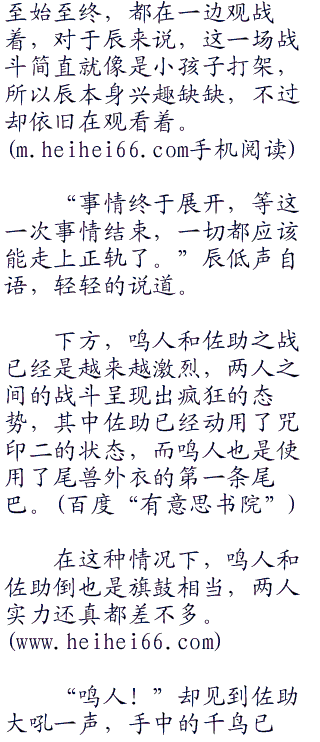 至始至终，都在一边观战
着，对于辰来说，这一场战
斗简直就像是小孩子打架，
所以辰本身兴趣缺缺，不过
却依旧在观看着。
(m.heihei66.com手机阅读)
“事情终于展开，等这
一次事情结束，一切都应该
能走上正轨了。”辰低声自
语，轻轻的说道。
下方，鸣人和佐助之战
已经是越来越激烈，两人之
间的战斗呈现出疯狂的态
势，其中佐助已经动用了咒
印二的状态，而鸣人也是使
用了尾兽外衣的第一条尾
巴。(百度“有意思书院”)
在这种情况下，鸣人和
佐助倒也是旗鼓相当，两人
实力还真都差不多。
(www.heihei66.com)
“鸣人！”却见到佐助
大吼一声，手中的千鸟已